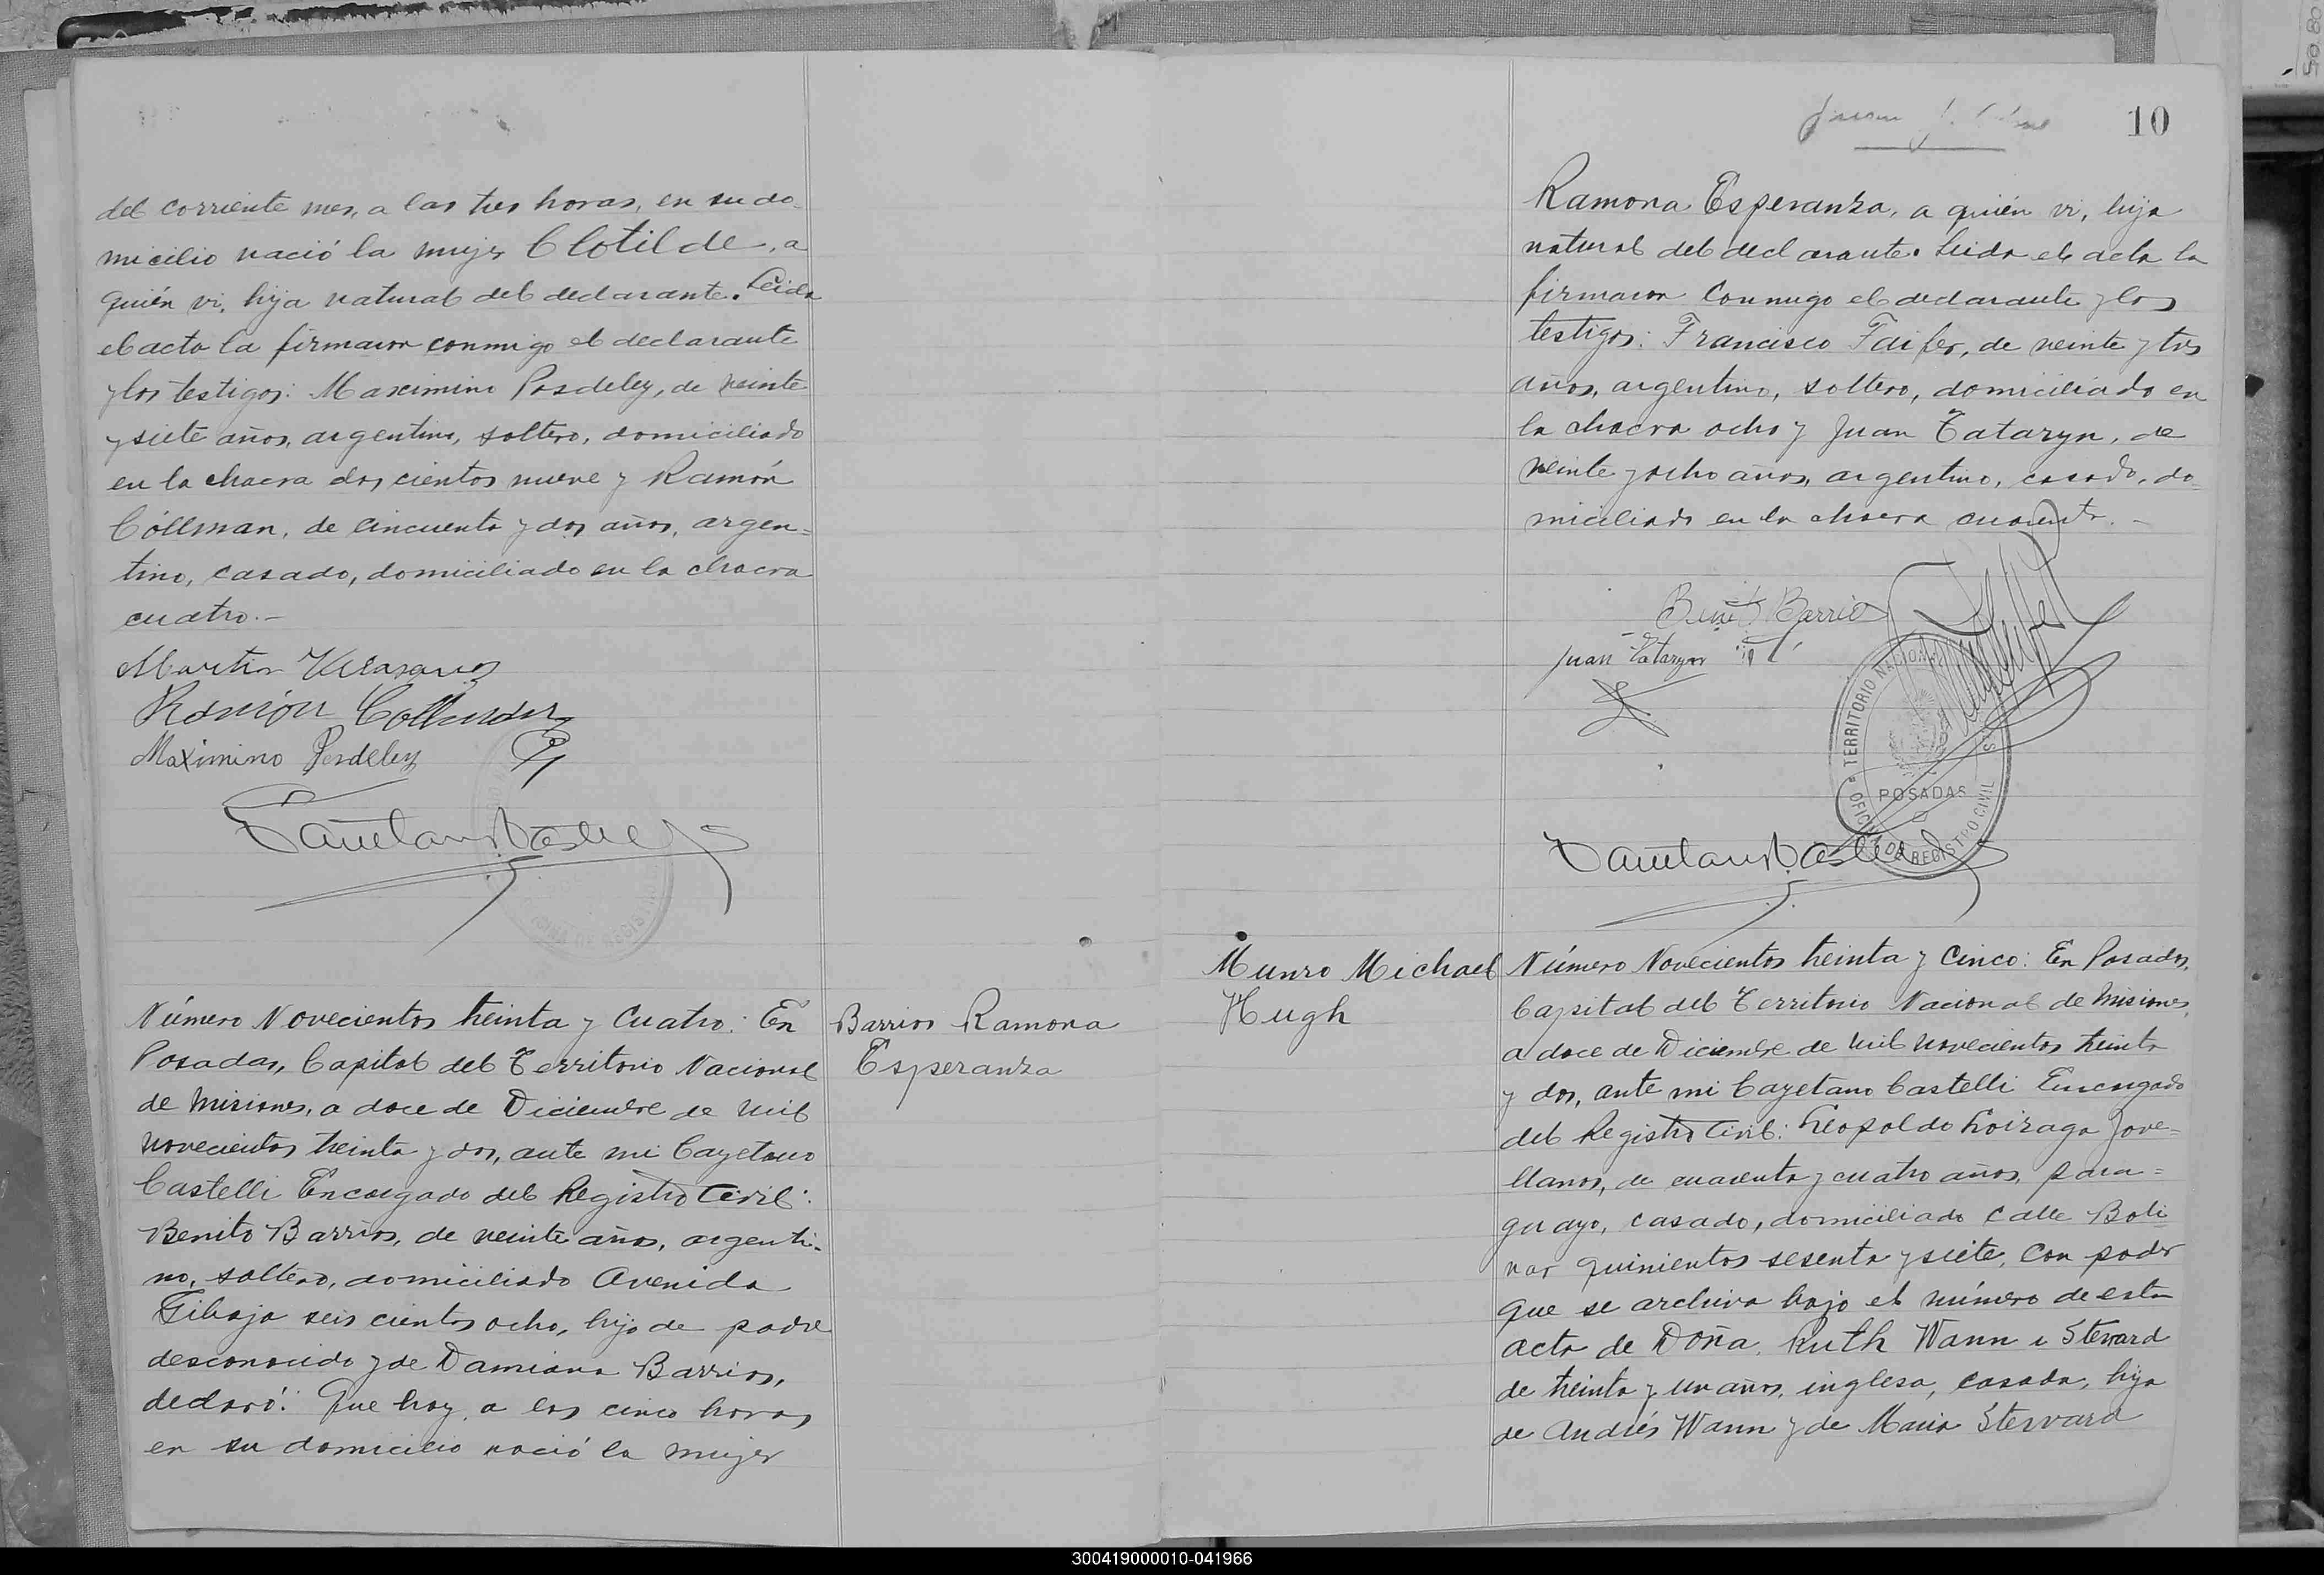 del corriente mes, a las tres horas, en su do-
micilio nació la mujer Clotilde, a
quién vi, hija natural del declarante. Leida
el acta la firmaron conmigo el declarante
y los testigos: Maximino Posdeley, de veinte
y siete años, argentino, soltero, domiciliado
en la chacra dos cientos nueve y Ramón
Cóllman, de cincuenta y dos años, argen=
tino, casado, domiciliado en la chacra
cuatro.-
Martin
Ramón Collman
Maximino Posdeley
Número Novecientos treinta y Cuatro: En
Posadas, Capital del Territorio Nacional
de Misiones, a doce de Diciembre de mil
novecientos treinta y dos, ante mi Cayetano
Castelli Encargado del Registro Civil:
Benito Barrios, de veinte años, argenti-
no, soltero, domiciliado Avenida
seis cientos ocho, hijo de padre
desconocido y de Damiana Barrios,
declaró: Que hoy, a las cinco horas
en su domicilio nació la mujer
Barrios Ramona
Esperanza
10
Ramona Esperanza, a quién vi, hija
natural del declarante. Leida el acta la
firmaron conmigo el declarante y los
testigos: Francisco Faifer, de veinte y tres
años, argentino, soltero, domiciliado en
la chacra ocho y Juan Tataryn, de
veinte y ocho años, argentino, casado, do-
miciliado en la chacra cuarenta.-
Benito Barrios
Juan Tataryn
TERRITORIO NACIONAL
POSADAS
OFICINA DE REGISTRO CIVIL
Munro Michael
Hugh
Número Novecientos treinta y Cinco: En Posadas,
Capital del Territorio Nacional de Misiones,
a doce de Diciembre de mil novecientos treinta
y dos, ante mi Cayetano Castelli Encargado
del Registro Civil: Leopoldo Loizaga Jove=
llanos, de cuarenta y cuatro años, para=
guayo, casado, domiciliado calle Boli
var quinientos sesenta y siete, con poder
que se archiva bajo el número de esta
acta de Doña Ruth Wann e Stevard
de treinta y un años, inglesa, casada, hija
de Andrés Wann y de Maria Stevard
300419000010-041966